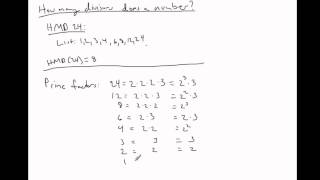 How many divisors does a number?
HMD 24:
List: 1, 2, 3, 4, 6, 8, 12, 24.
HMD(24) = 8
Prime factors: 24 = 2·2·2·3 = 2³·3
12 = 2·2·3 = 2²·3
8 = 2·2·2 = 2³
6 = 2·3 = 2·3
4 = 2·2 = 2²
3 = 3 = 3
2 = 2 = 2
1